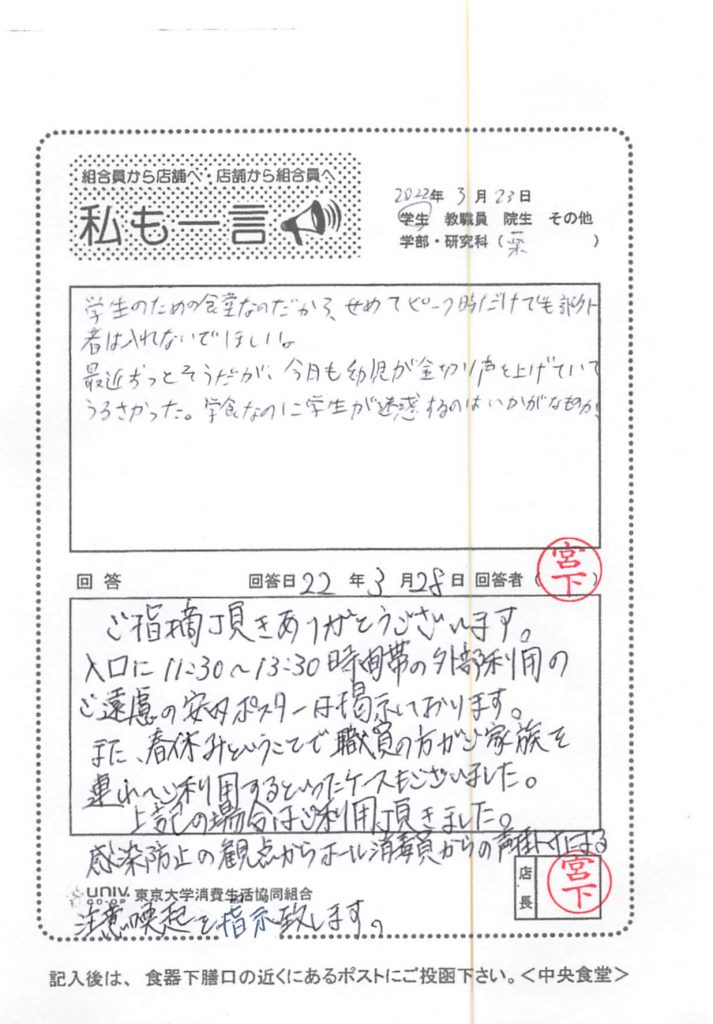 組合員から店舗へ・店舗から組合員へ
私も一言
2022年 3月 23日
学生 教職員 院生 その他
学部・研究科 (薬 )
学生のための食堂なのだから、せめてピーク時だけでも部外
者は入れないでほしい。
最近ずっとそうだが、今日も幼児が金切り声を上げていて
うるさかった。学食なのに学生が迷惑するのはいかがなものか。
回答 回答日 22 年 3 月 28 日 回答者 (宮下)
ご指摘頂きありがとうございます。
入口に 11:30～13:30 時間帯の外部利用の
ご遠慮の案内ポスターは掲示しております。
また、春休みということで職員の方がご家族を
連れへご利用するといったケースもございました。
上記の場合はご利用頂きました。
感染防止の観点からホール消毒員からの声掛けによる
UNIV. CO-OP 東京大学消費生活協同組合
店長 宮下
注意喚起を指示致します。
記入後は、食器下膳口の近くにあるポストにご投函下さい。＜中央食堂＞